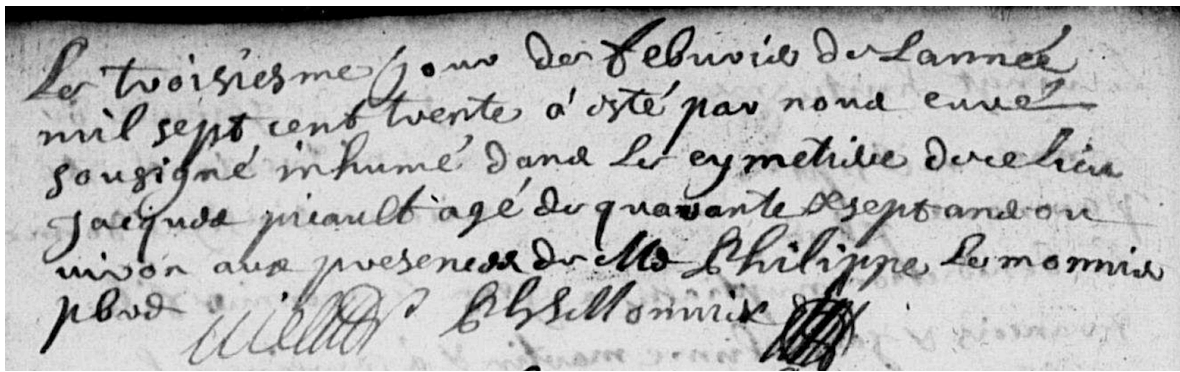 Le troisiesme jour de febvrier de Lannée
mil sept cent trente a esté par nous curé
sousigné inhumé dans le cymetiere de ce lieu
Jacques picault agé de quarante & sept ans ou
viron aux presences de Me Philippe Le monnier
pbre Ph Le Monnier